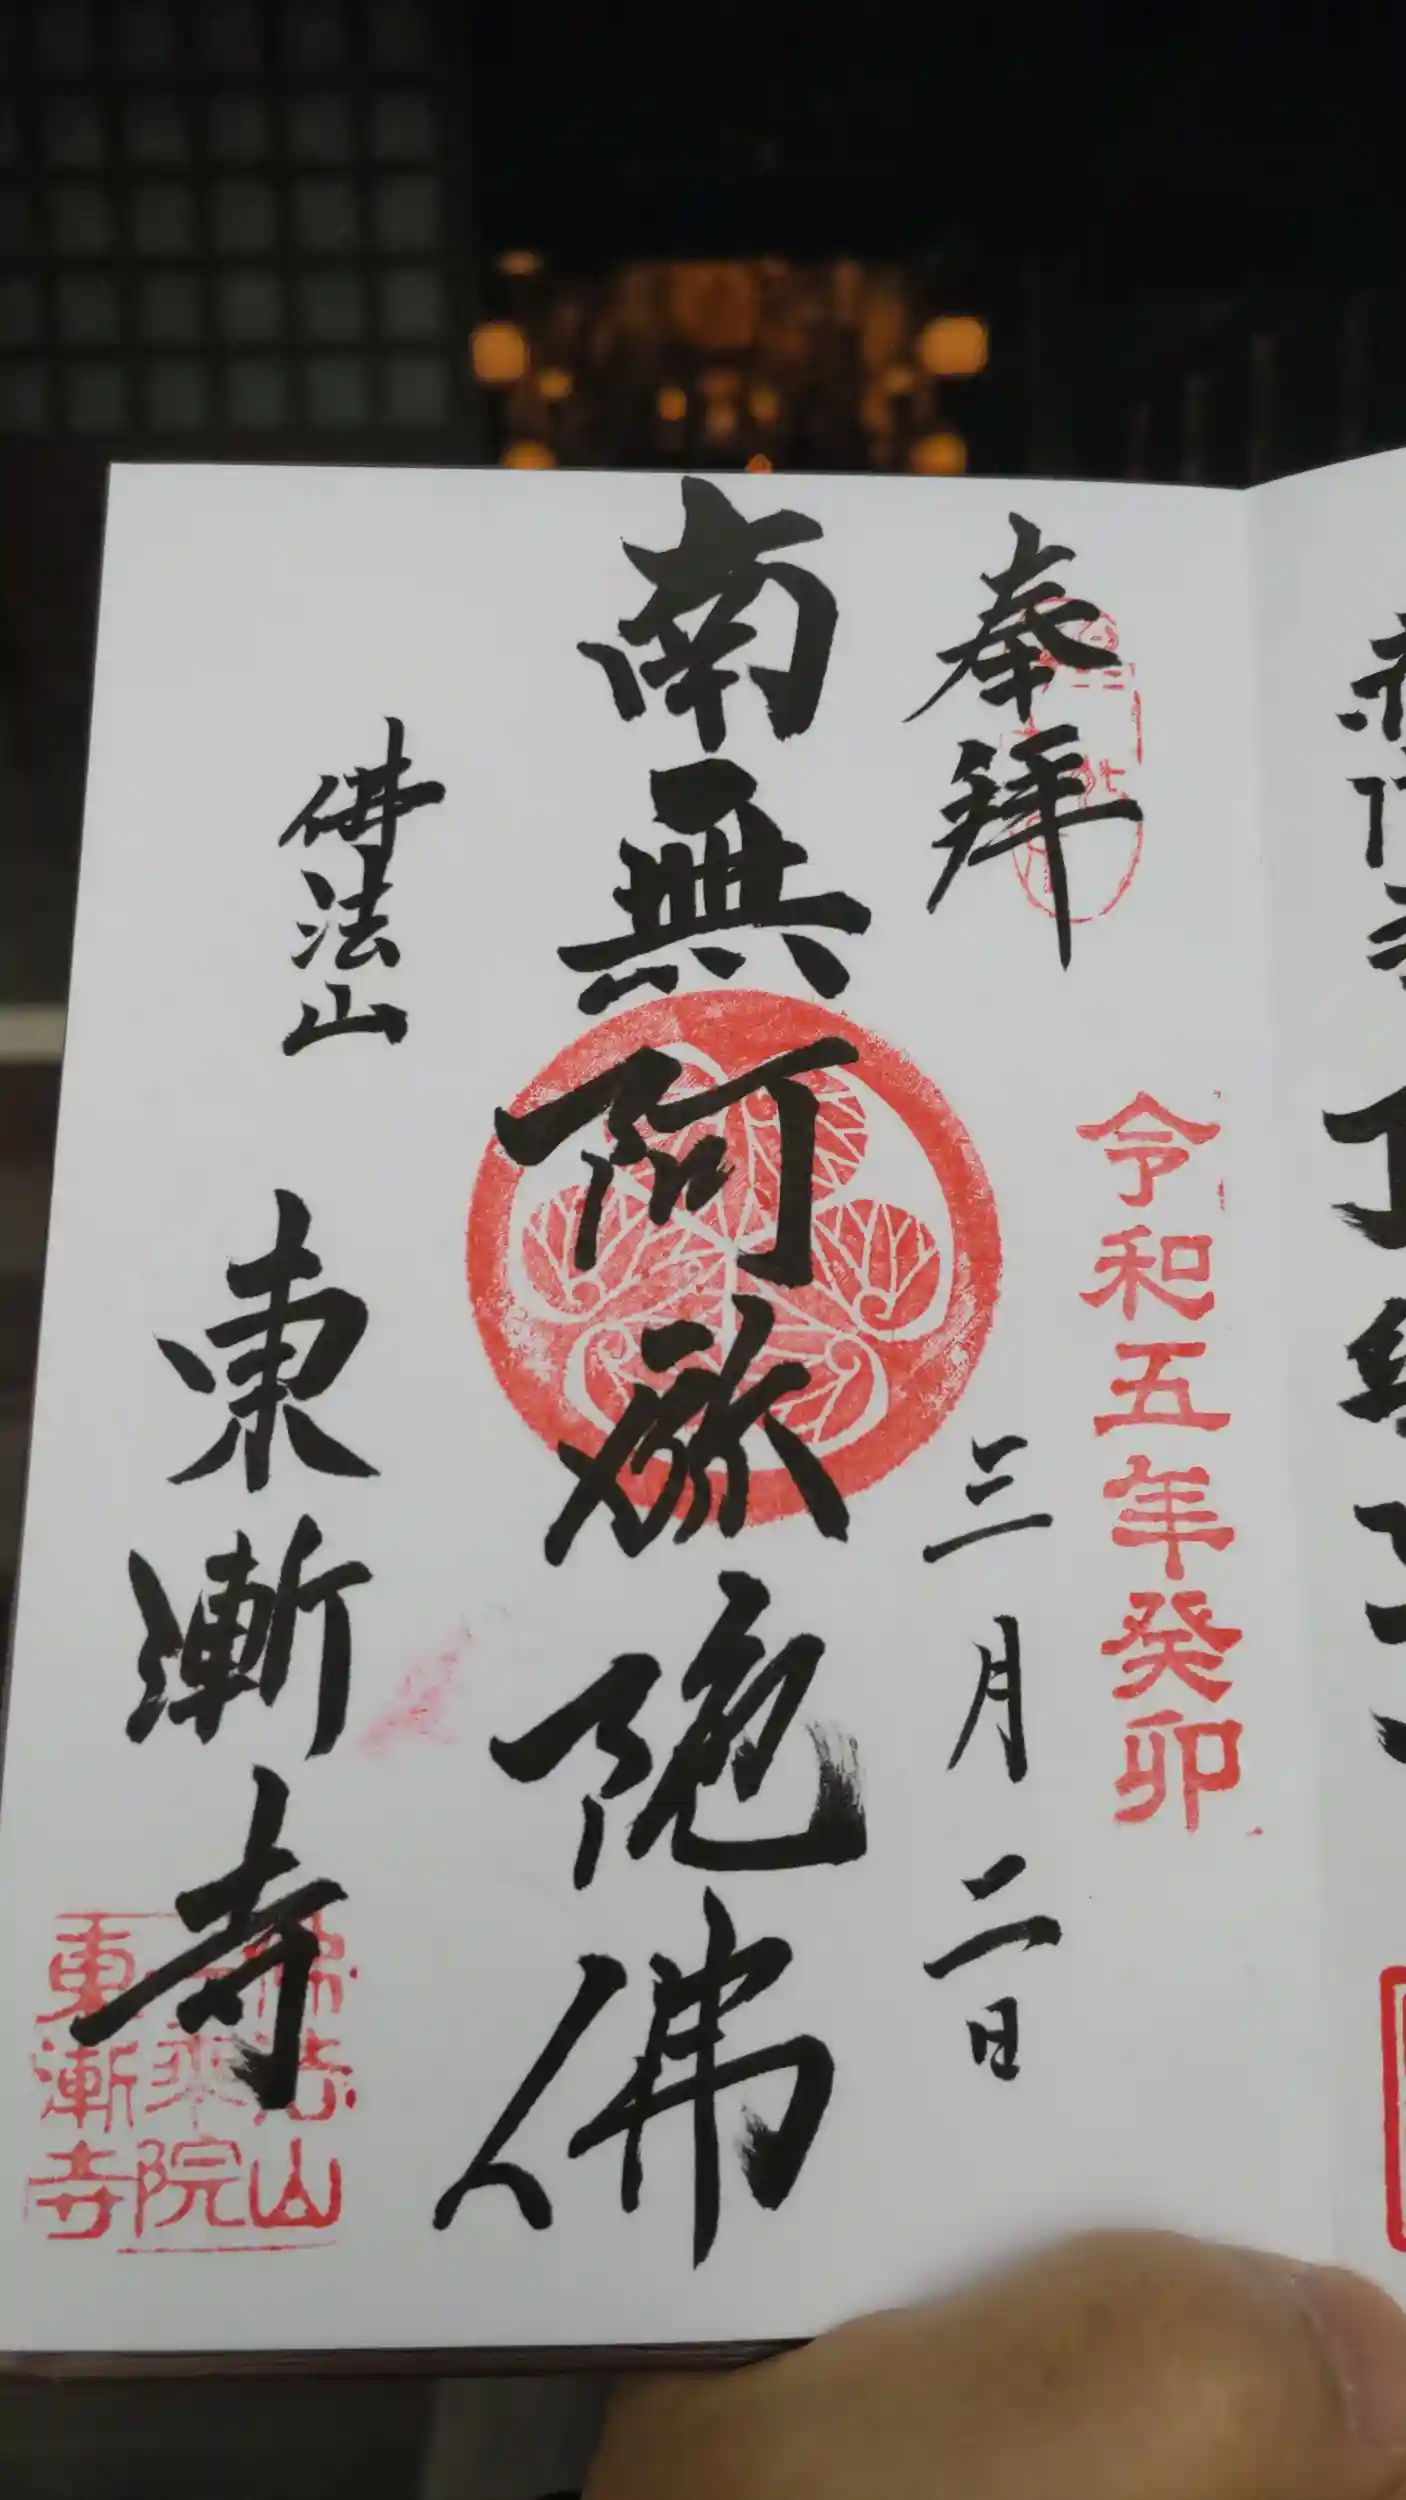 奉拝
令和五年癸卯
三月二日
南無阿弥陀佛
佛法山
東漸寺
佛法山
一乘院
東漸寺